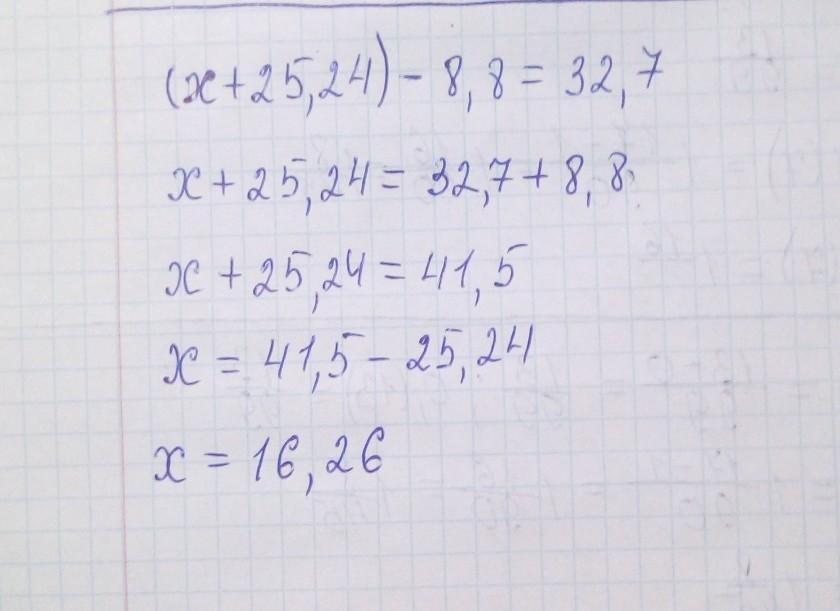 (x+25,24) - 8,8 = 32,7
x + 25,24 = 32,7 + 8,8
x + 25,24 = 41,5
x = 41,5 - 25,24
x = 16,26